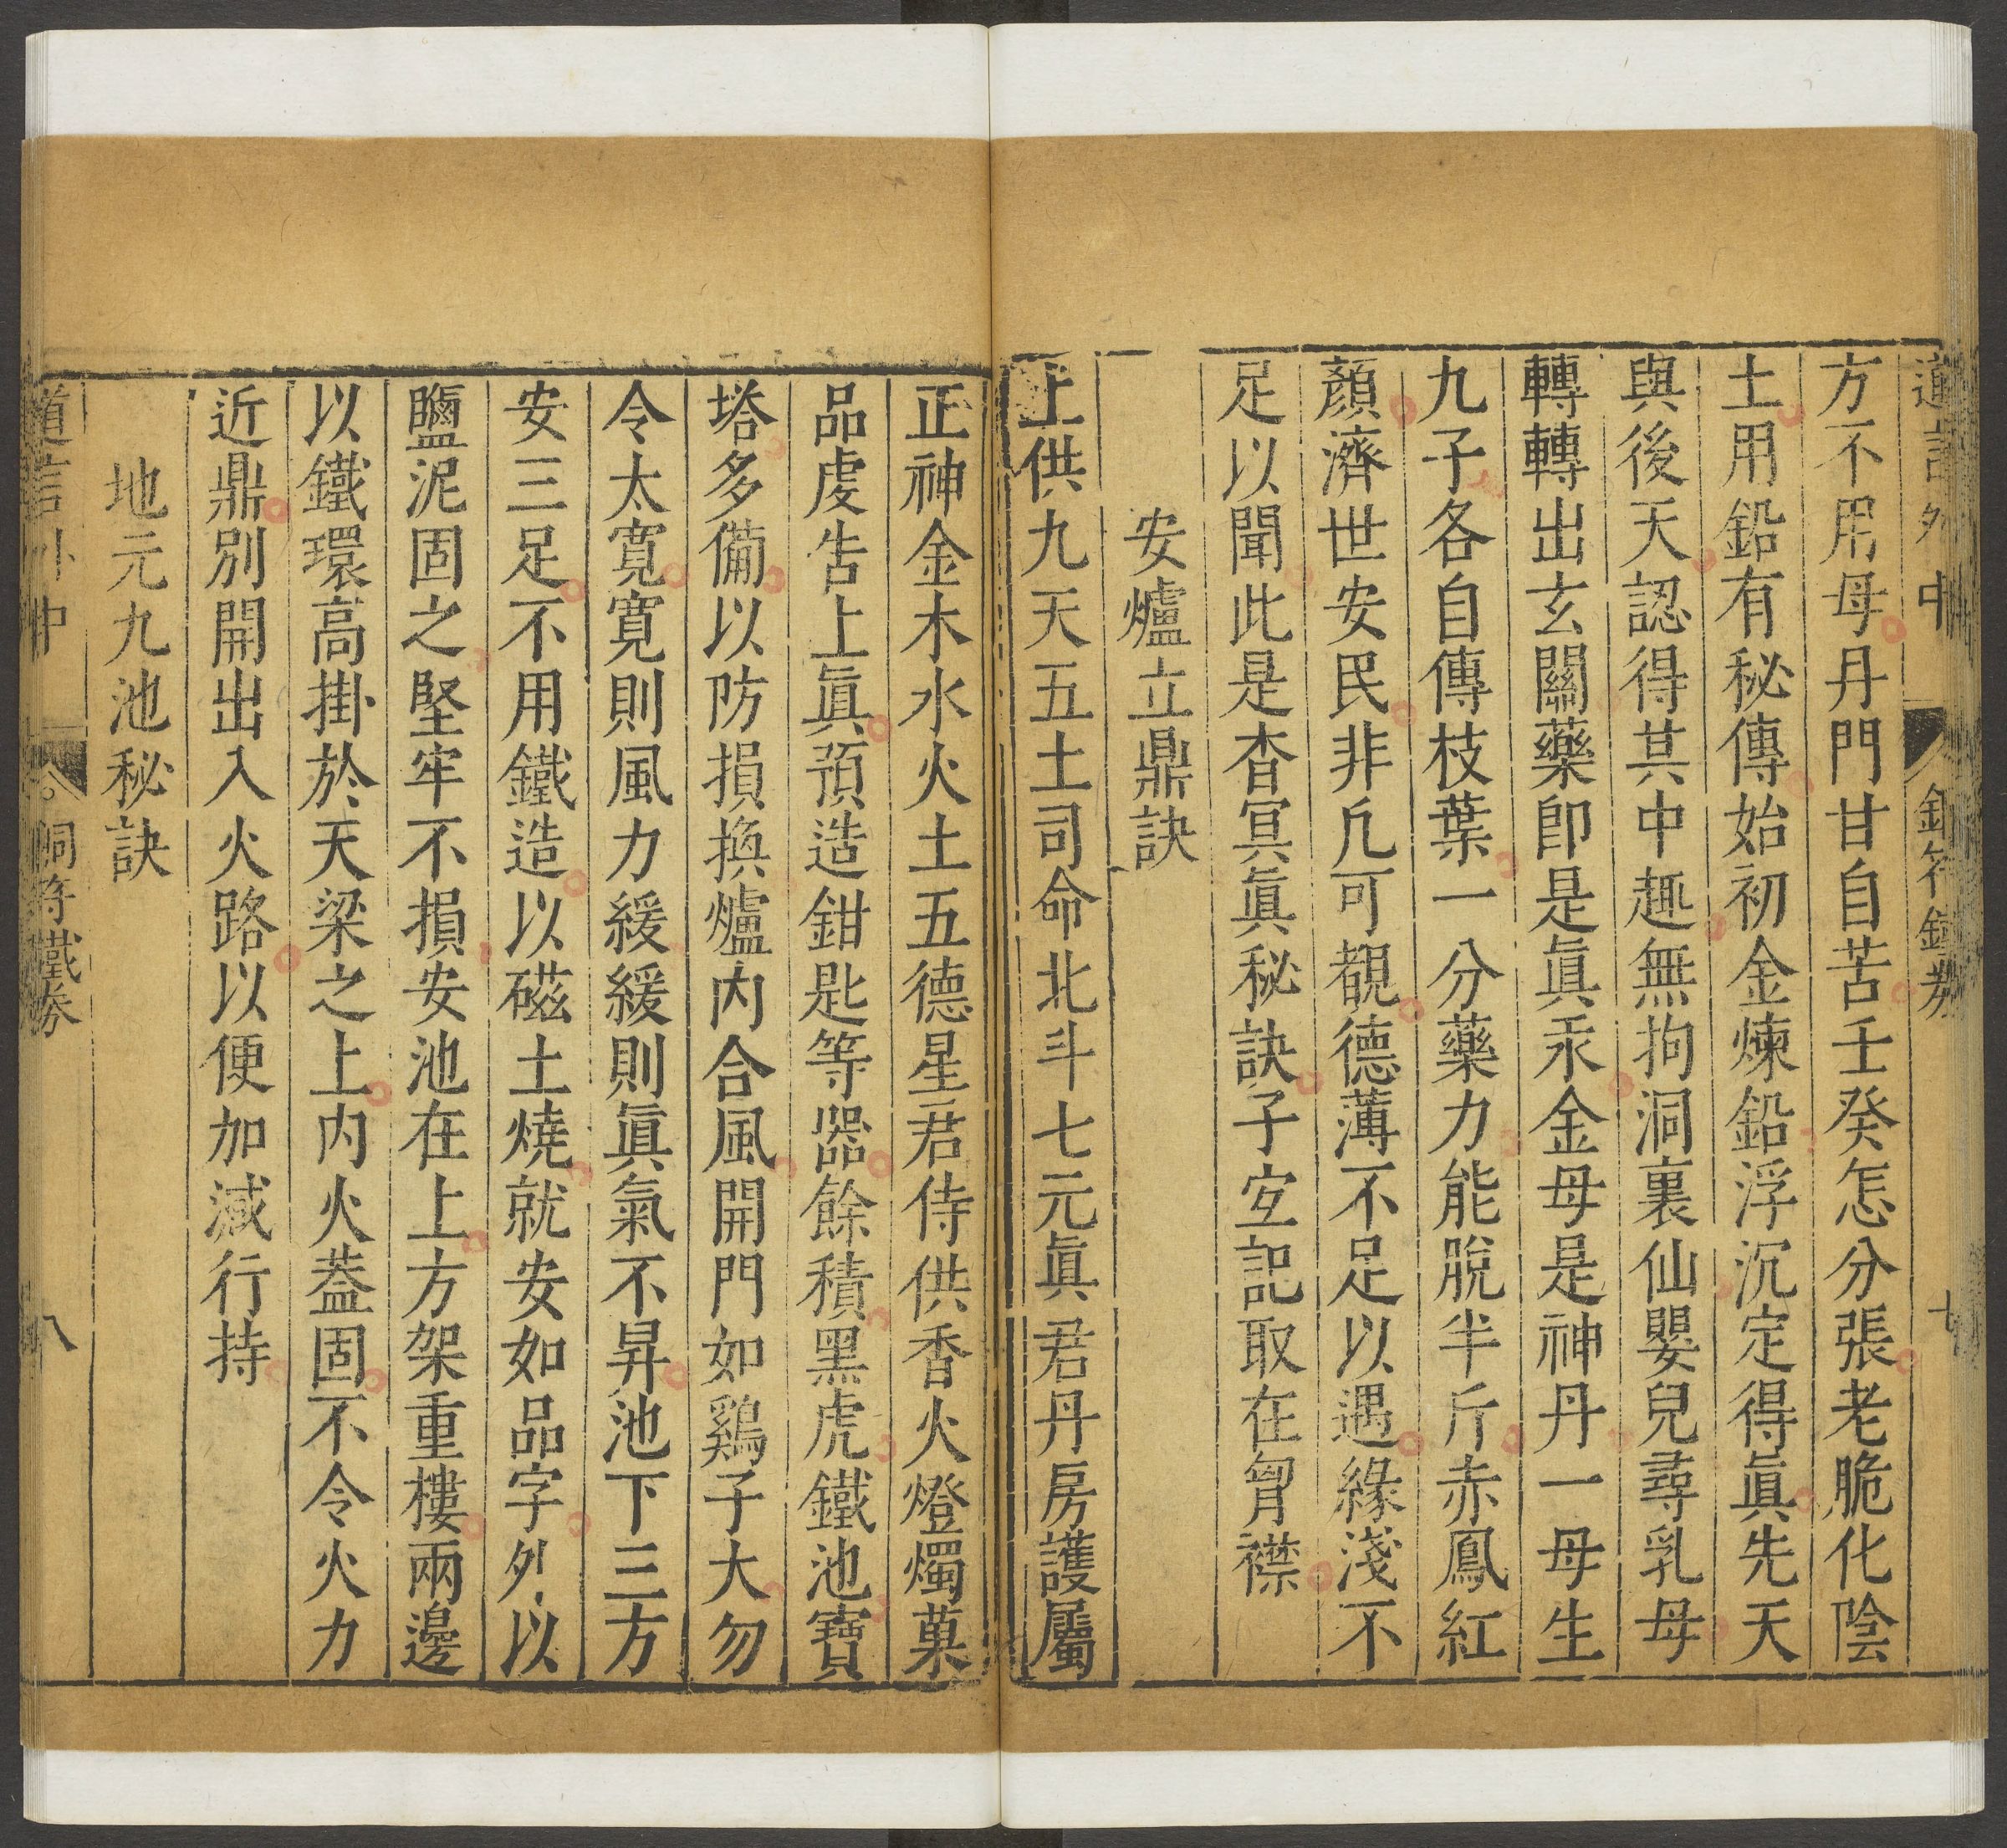 道言外 中 銅符鐵券 七
方不用母丹門甘自苦壬癸怎分張老脆化陰
土用鉛有秘傳始初金煉鉛浮沉定得眞先天
與後天認得其中趣無拘洞裏仙嬰兒尋乳母
轉轉出玄關藥卽是眞汞金母是神丹一母生
九子各自傳枝葉一分藥力能脫半斤赤鳳紅
顏濟世安民非凡可覩德薄不足以遇緣淺不
足以聞此是杳冥眞秘訣子宜記取在胷襟
安爐立鼎訣
上供九天五土司命北斗七元眞君丹房護屬
正神金木水火土五德星君侍供香火燈燭菓
品虔告上眞預造鉗匙等器餘積黑虎鐵池寶
塔多備以防損換爐内合風開門如鷄子大勿
令太寬寛則風力緩緩則眞氣不昇池下三方
安三足不用鐵造以磁土燒就安如品字外以
鹽泥固之堅牢不損安池在上方架重樓兩邊
以鐵環高掛於天梁之上内火葢固不令火力
近鼎別開出入火路以便加減行持
地元九池秘訣
道言外 中 銅符鐵券 八